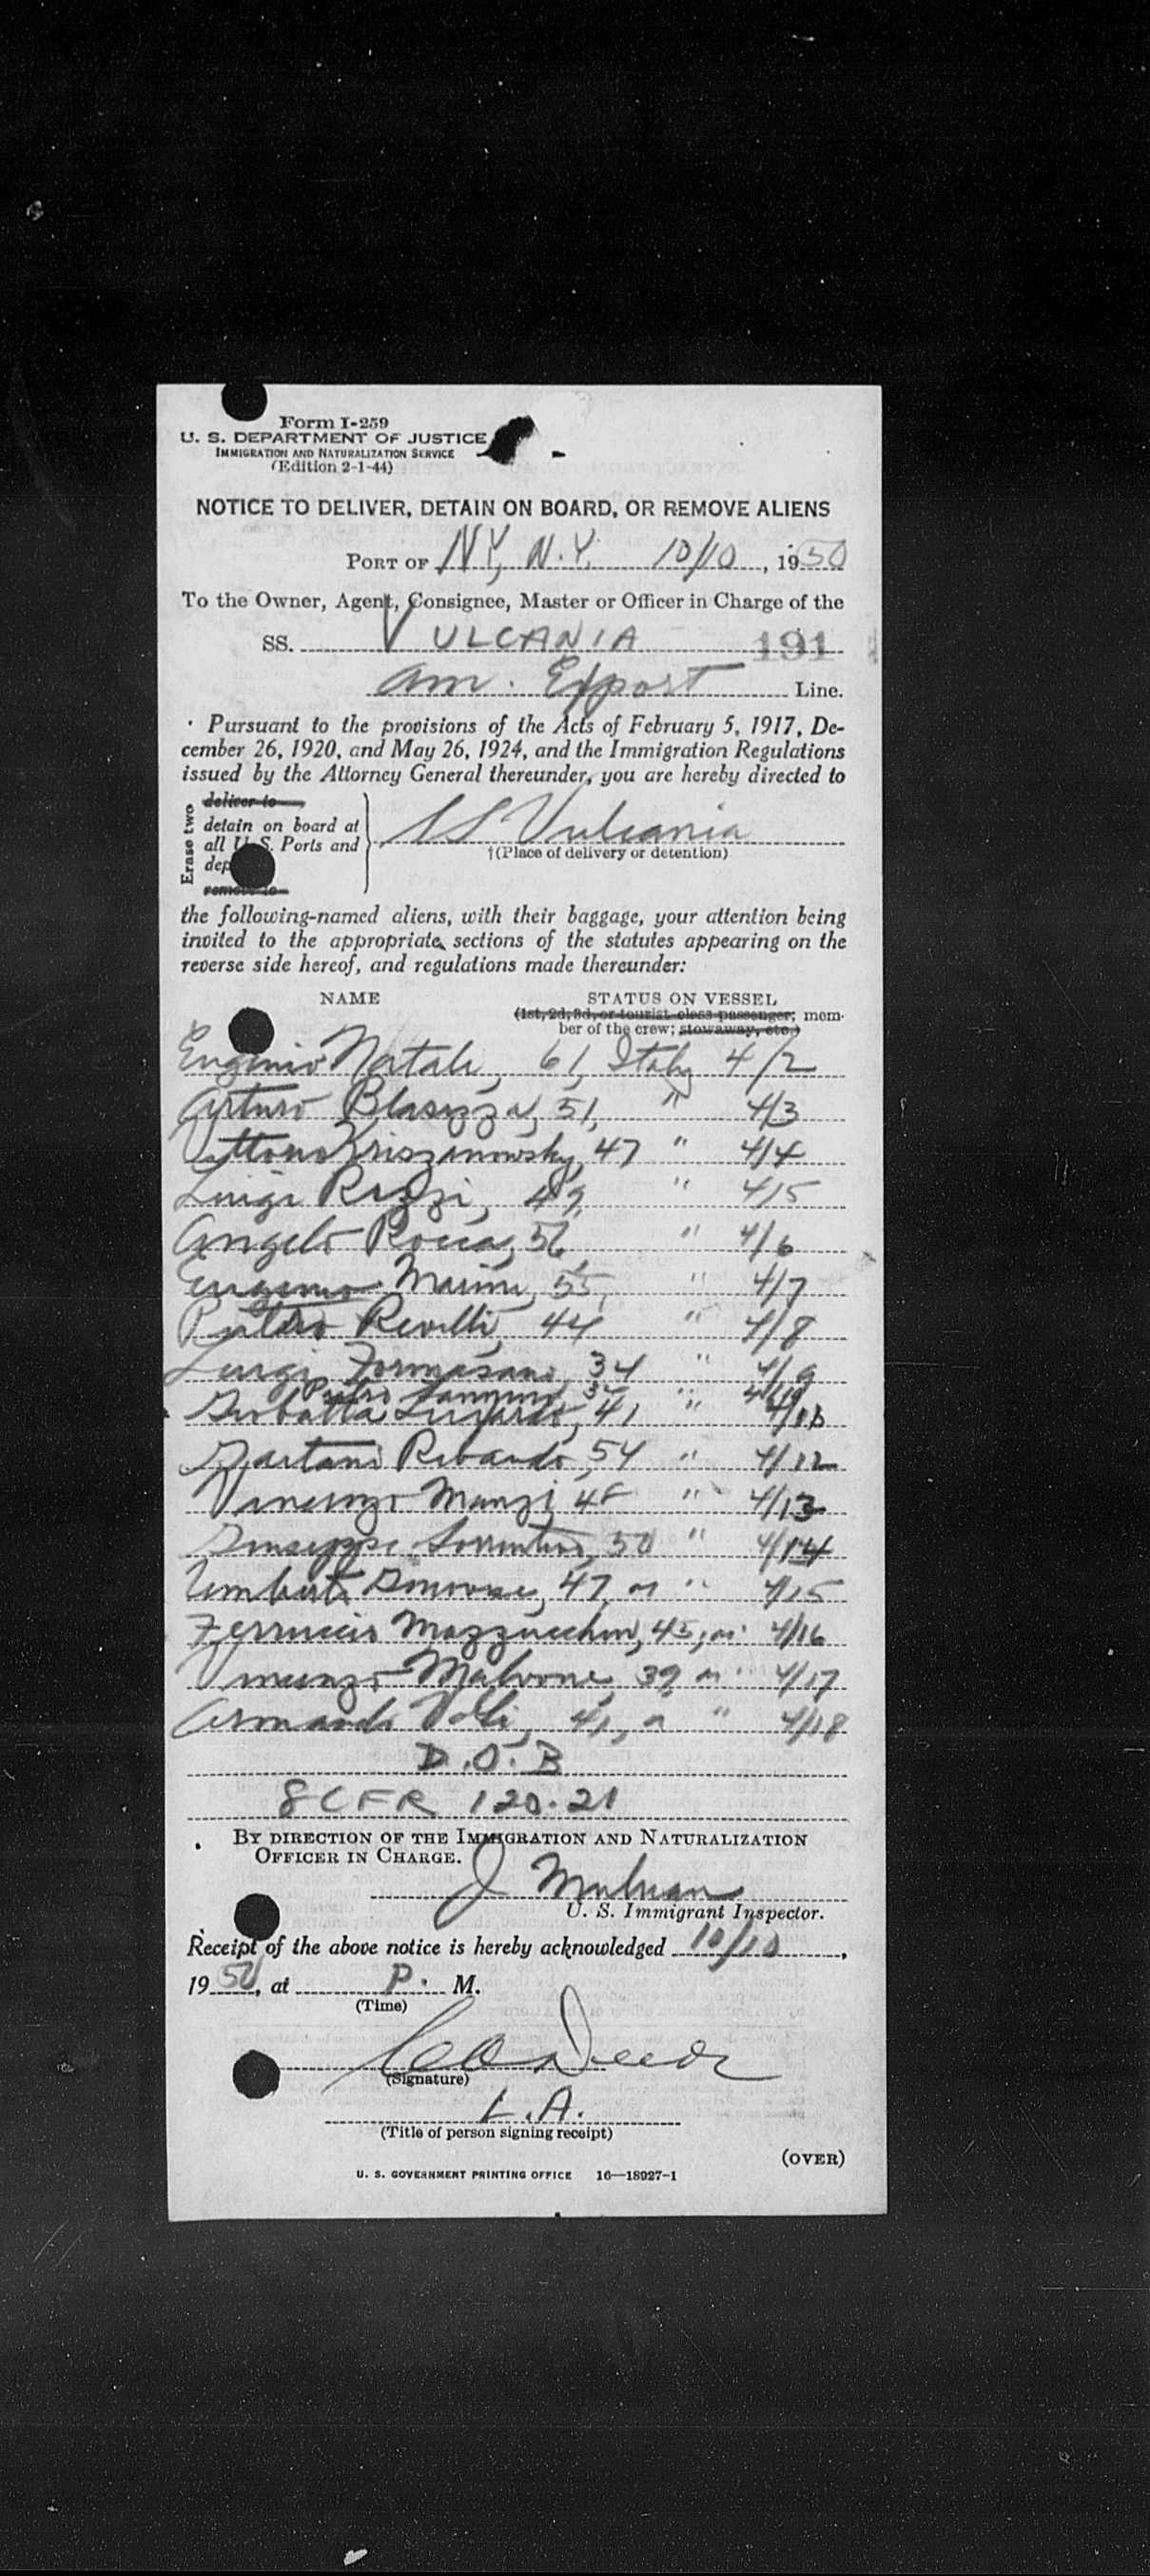 Form I-259
U. S. DEPARTMENT OF JUSTICE
IMMIGRATION AND NATURALIZATION SERVICE
(Edition 2-1-44)
NOTICE TO DELIVER, DETAIN ON BOARD, OR REMOVE ALIENS
PORT OF NY, N.Y. 10/10, 1950
To the Owner, Agent, Consignee, Master or Officer in Charge of the
SS. VULCANIA 191
Am. Export Line.
Pursuant to the provisions of the Acts of February 5, 1917, De-
cember 26, 1920, and May 26, 1924, and the Immigration Regulations
issued by the Attorney General thereunder, you are hereby directed to
Erase two
deliver to
detain on board at
all U. S. Ports and
dep
remove to
SS Vulcania
†(Place of delivery or detention)
the following-named aliens, with their baggage, your attention being
invited to the appropriate sections of the statutes appearing on the
reverse side hereof, and regulations made thereunder:
NAME STATUS ON VESSEL
(1st, 2d, 3d, or tourist class passenger; mem-
ber of the crew; stowaway, etc.)
Eugenio Natale, 61, Italy 4/2
Arturo Blasizza, 51, " 4/3
47 " 4/4
Luigi 49, " 4/5
Angelo Rocca, 56, " 4/6
Eugenio Marini, 55, " 4/7
Pietro Revelli, 44 " 4/8
Luigi Formasano, 34 " 4/9
Pietro "
41 "
Gaetano Ribaudo, 54 " 4/12
Vincenzo Manzi, " 4/13
Giuseppe Sorrentino, 50 " 4/14
Umberto Genovese, 47, " 4/15
Ferruccio Mazzucchin, 45, " 4/16
Vincenzo Malvone, 39 " 4/17
Armando 41, " 4/18
D.O.B
8 CFR 120.21
BY DIRECTION OF THE IMMIGRATION AND NATURALIZATION
OFFICER IN CHARGE.
J
U. S. Immigrant Inspector.
Receipt of the above notice is hereby acknowledged 10/10,
1950, at P. M.
(Time)
(Signature)
L.A.
(Title of person signing receipt)
(OVER)
U. S. GOVERNMENT PRINTING OFFICE 16—18927-1